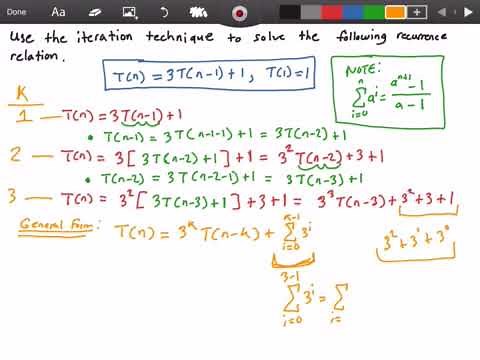 Done Aa
Use the iteration technique to solve the following recurrence
relation.
T(n) = 3T(n-1)+1, T(1)=1
NOTE:
\sum_{i=0}^{n} a^i = \frac{a^{n+1}-1}{a-1}
K
1 — T(n) = 3T(n-1)+1
• T(n-1) = 3T(n-1-1)+1 = 3T(n-2)+1
2 — T(n) = 3[3T(n-2)+1]+1 = 3^2T(n-2)+3+1
• T(n-2) = 3T(n-2-1)+1 = 3T(n-3)+1
3 — T(n) = 3^2[3T(n-3)+1]+3+1 = 3^3T(n-3)+3^2+3+1
General Form: T(n) = 3^k T(n-k) + \sum_{i=0}^{k-1} 3^i
3^2+3^1+3^0
\sum_{i=0}^{3-1} 3^i = \sum_{i=}